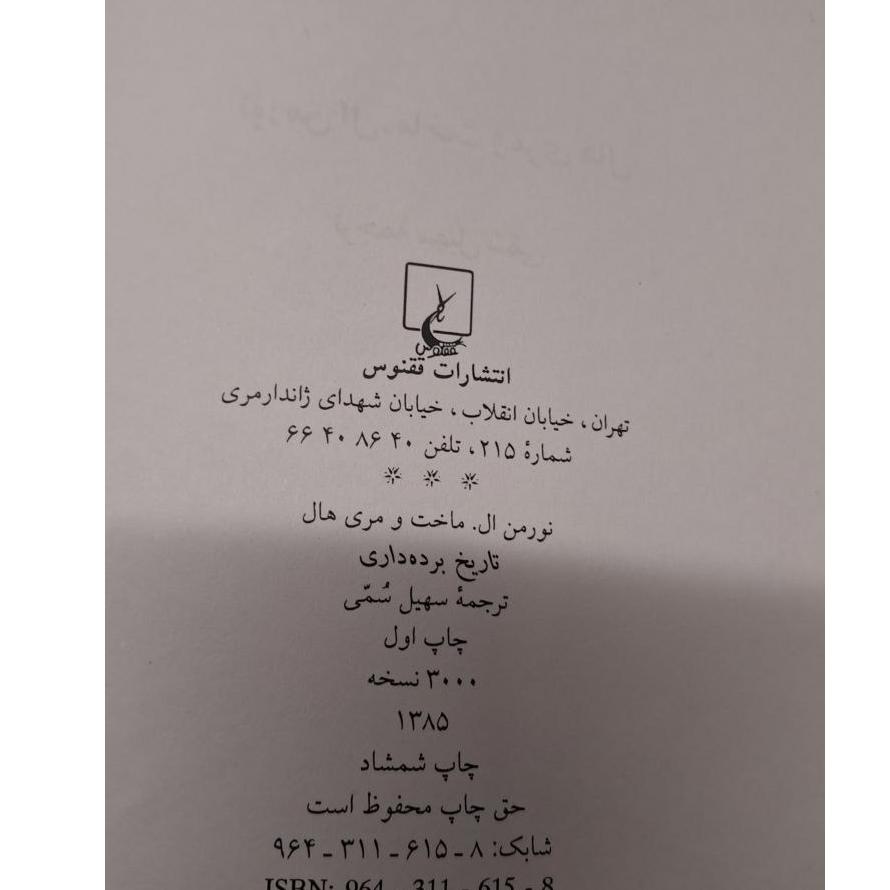 ققنوس
انتشارات ققنوس
تهران، خیابان انقلاب، خیابان شهدای ژاندارمری
شمارهٔ ۲۱۵، تلفن ۴۰ ۸۶ ۴۰ ۶۶
* * *
نورمن ال. ماخت و مری هال
تاریخ برده‌داری
ترجمهٔ سهیل سُمّی
چاپ اول
۳۰۰۰ نسخه
۱۳۸۵
چاپ شمشاد
حق چاپ محفوظ است
شابک: ۸ ـ ۶۱۵ ـ ۳۱۱ ـ ۹۶۴
ISBN: 964 - 311 - 615 - 8